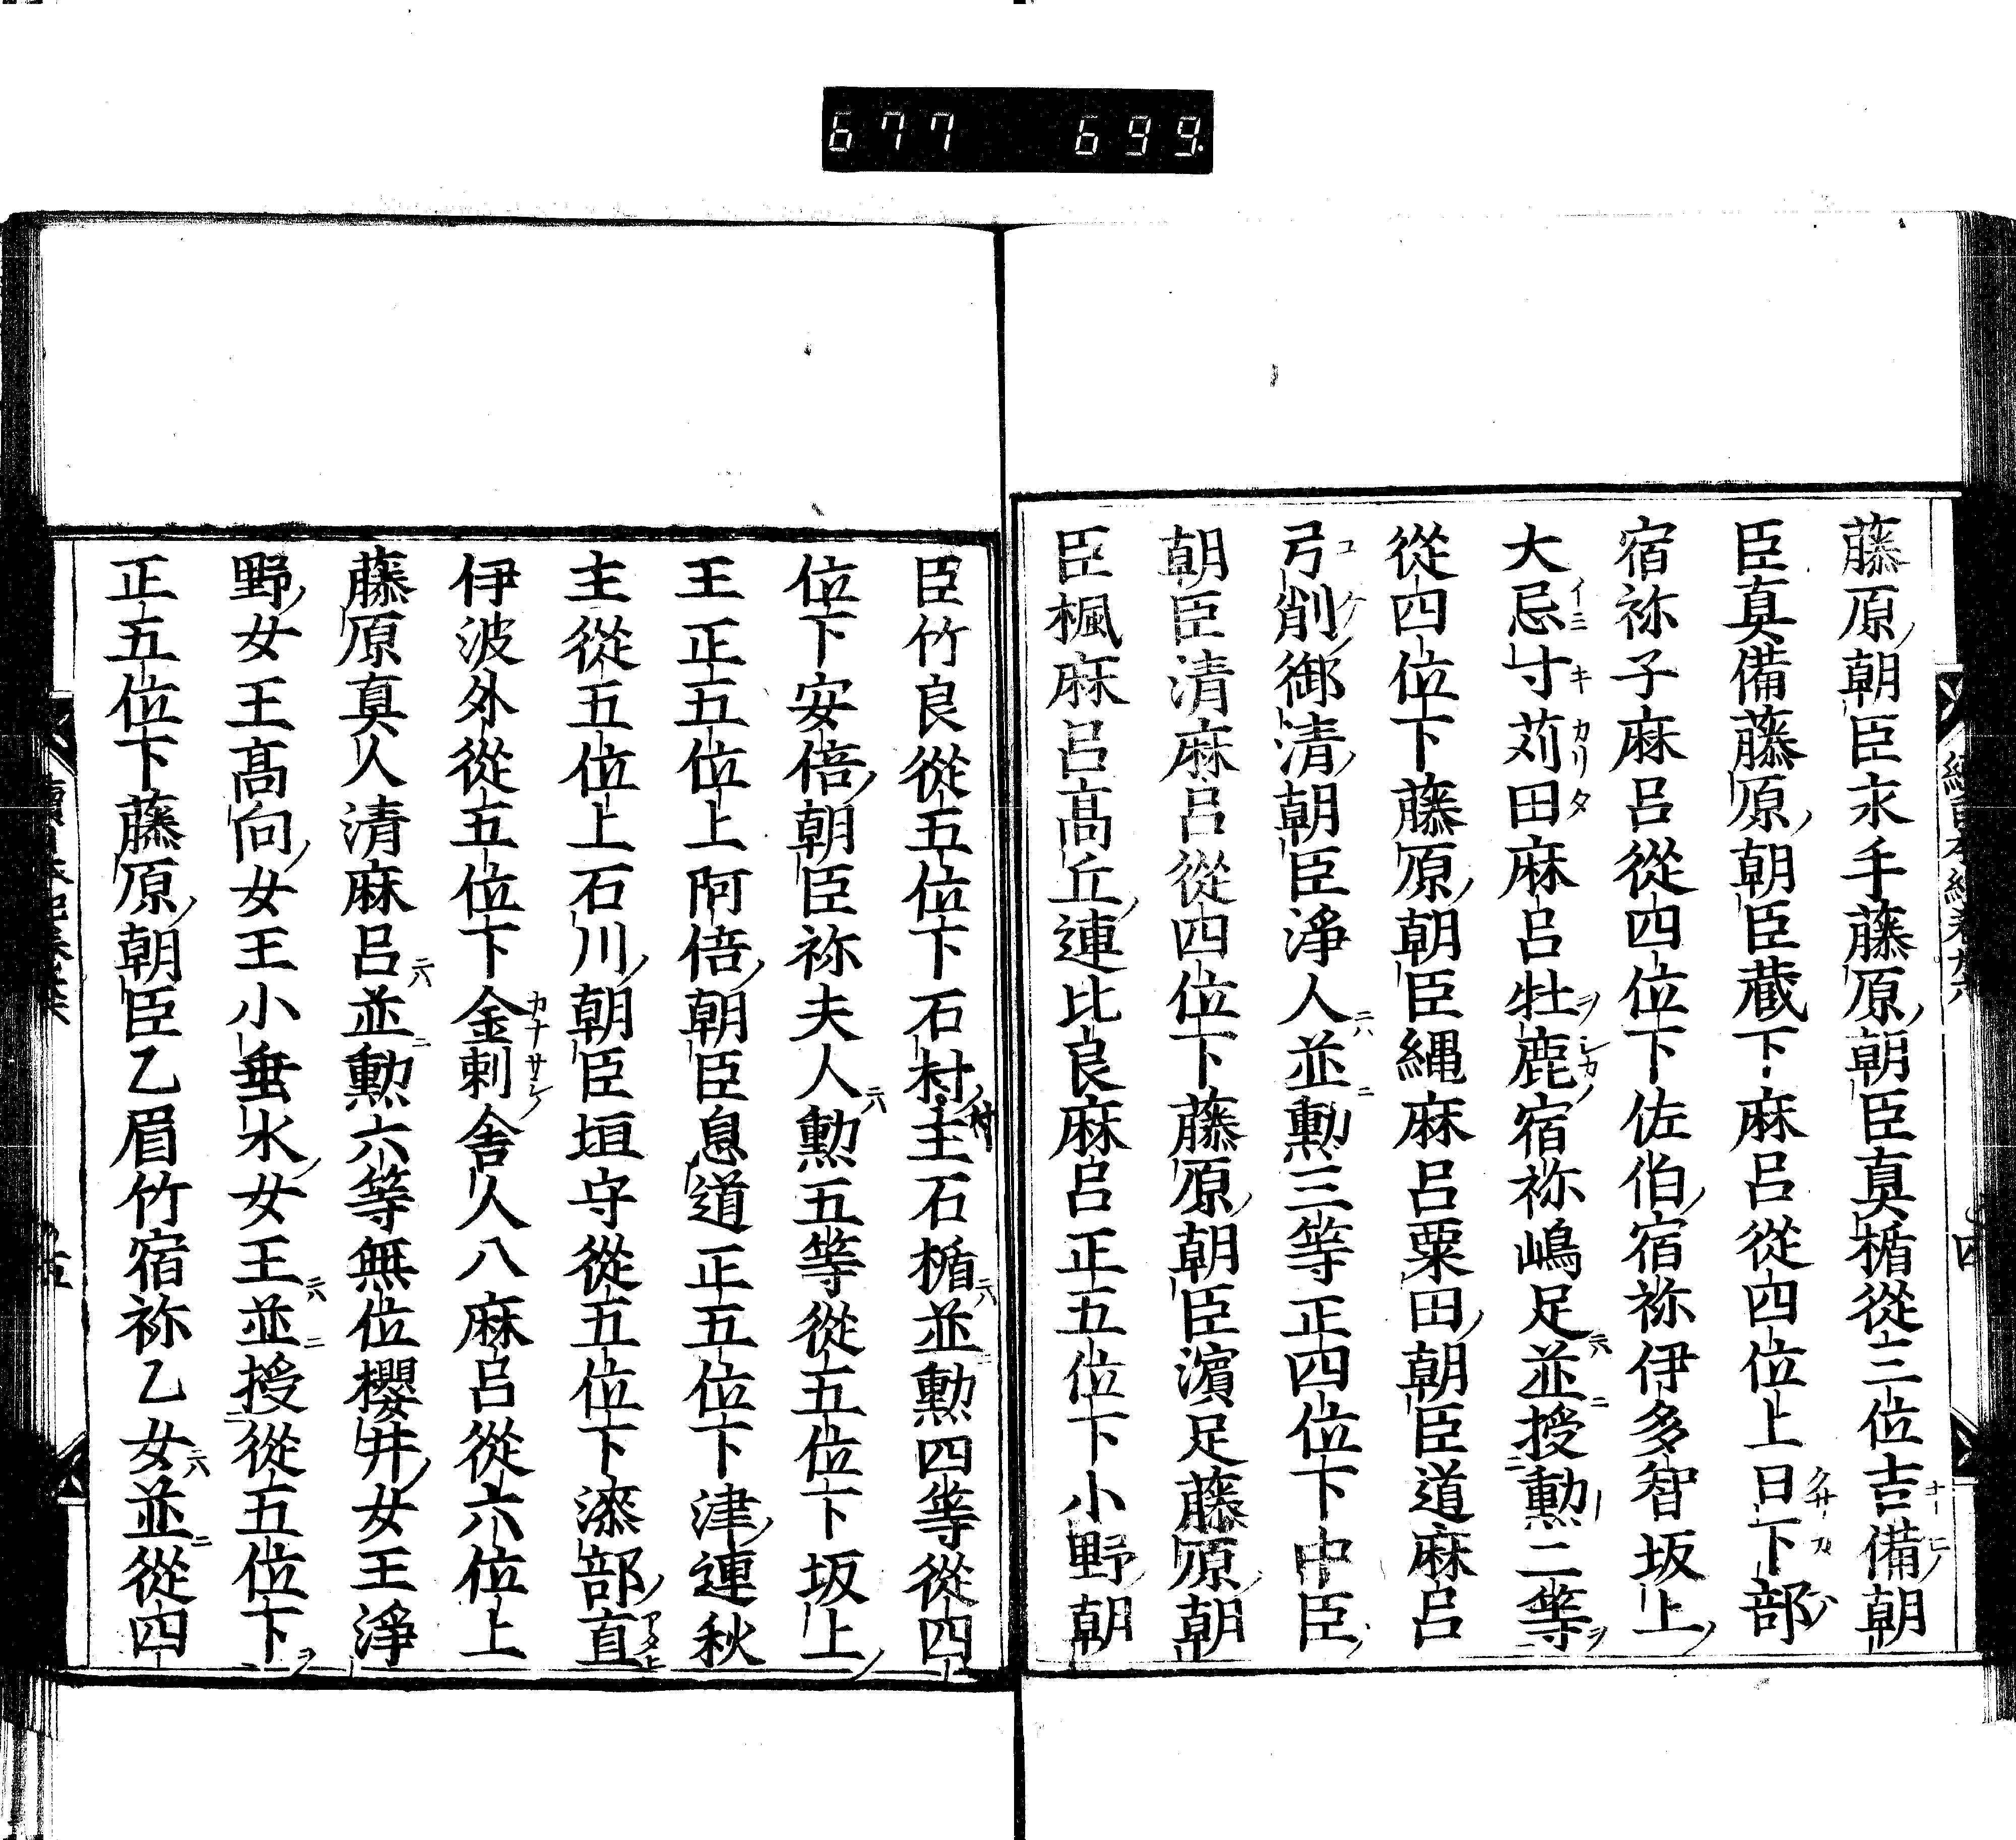 677 699.
藤原朝臣永手藤原朝臣真楯從三位吉備朝
臣真備藤原朝臣蔵下麻呂從四位上日下部
宿祢子麻呂從四位下佐伯宿祢伊多智坂上
大忌寸苅田麻呂牡鹿宿祢嶋足並授勲二等
從四位下藤原朝臣縄麻呂粟田朝臣道麻呂
弓削御清朝臣淨人並勲三等正四位下中臣
朝臣清麻呂從四位下藤原朝臣濱足藤原朝
臣楓麻呂髙丘連比良麻呂正五位下小野朝
臣竹良從五位下石村村主石楯並勲四等從四
位下安倍朝臣祢夫人勲五等從五位下坂上
王正五位上阿倍朝臣息道正五位下津連秋
主從五位上石川朝臣垣守從五位下漆部直
伊波外從五位下金刺舎人八麻呂從六位上
藤原真人清麻呂並勲六等無位櫻井女王淨
野女王髙向女王小垂水女王並授從五位下
正五位下藤原朝臣乙眉竹宿祢乙女並從四